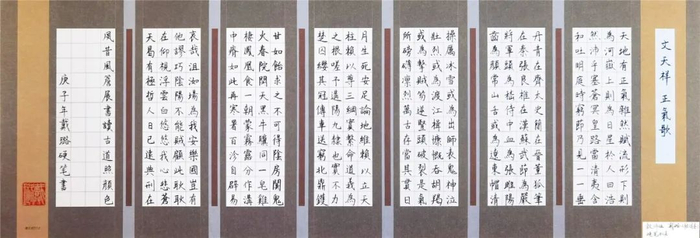 文天祥 正氣歌
天地有正氣雜然賦流形下則
為河嶽上則為日星於人曰浩
然沛乎塞蒼冥皇路當清夷含
和吐明庭時窮節乃見一一垂
丹青在齊太史簡在晉董狐筆
在秦張良椎在漢蘇武節為嚴
將軍頭為嵇侍中血為張睢陽
齒為顏常山舌或為遼東帽清
操厲冰雪或為出師表鬼神泣
壯烈或為渡江楫慷慨吞胡羯
或為擊賊笏逆豎頭破裂是氣
所磅礴凜烈萬古存當其貫日
月生死安足論地維賴以立天
柱賴以尊三綱實繫命道義為
之根嗟予遘陽九隸也實不力
楚囚纓其冠傳車送窮北鼎鑊
甘如飴求之不可得陰房闐鬼
火春院閟天黑牛驥同一皂雞
棲鳳凰食一朝蒙霧露分作溝
中瘠如此再寒暑百沴自辟易
哀哉沮洳場為我安樂國豈有
他謬巧陰陽不能賊顧此耿耿
在仰視浮雲白悠悠我心悲蒼
天曷有極哲人日已遠典刑在
夙昔風簷展書讀古道照顏色
庚子年戴璐硬筆書